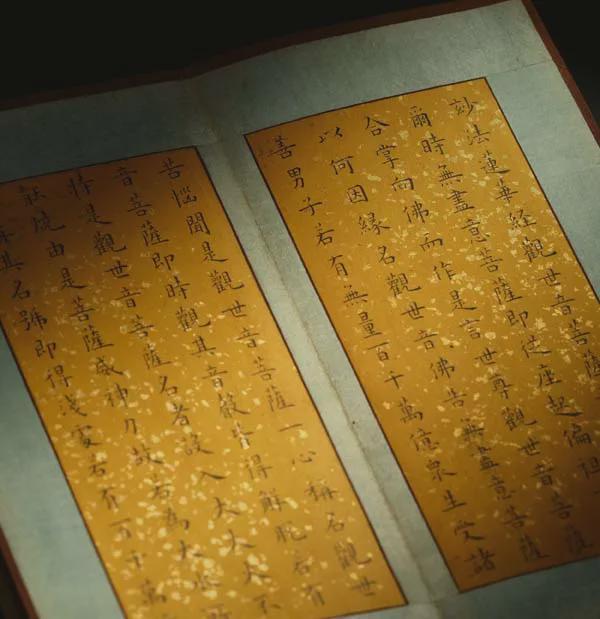 妙法蓮華經觀世音菩薩
爾時無盡意菩薩即從座起偏袒
合掌向佛而作是言世尊觀世音菩薩
以何因緣名觀世音佛告無盡意菩薩
善男子若有無量百千萬億衆生受諸
苦惱聞是觀世音菩薩一心稱名觀世
音菩薩即時觀其音聲皆得解脫若有
持是觀世音菩薩名者設入大火火不
能燒由是菩薩威神力故若為大水所
其名號即得淺處若有百千萬